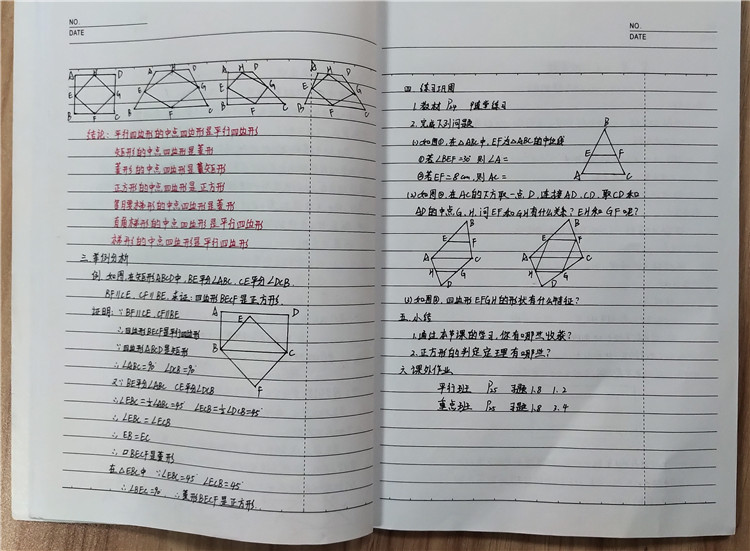 NO.
DATE
A H D E G B F C
A H D E G B F C
A H D E G B F C
A H D E G B F C
结论: 平行四边形的中点四边形是平行四边形
矩形的中点四边形是菱形
菱形的中点四边形是矩形
正方形的中点四边形是正方形
等腰梯形的中点四边形是菱形
直角梯形的中点四边形是平行四边形
梯形的中点四边形是平行四边形
三. 案例分析
例. 如图, 在矩形ABCD中, BE平分∠ABC, CE平分∠DCB,
BF∥CE, CF∥BE, 求证: 四边形BECF是正方形.
证明: ∵BF∥CE, CF∥BE
∴四边形BECF是平行四边形
∵四边形ABCD是矩形
∴∠ABC=90° ∠DCB=90°
又∵BE平分∠ABC CE平分∠DCB
∴∠EBC=½∠ABC=45° ∠ECB=½∠DCB=45°
∴∠EBC=∠ECB
∴EB=EC
∴▱BECF是菱形
在△EBC中 ∵∠EBC=45° ∠ECB=45°
∴∠BEC=90° ∴菱形BECF是正方形.
A D E B C F
NO.
DATE
四. 练习巩固
1. 教材 P24 随堂练习
2. 完成下列问题
(1)如图①, 在△ABC中, EF为△ABC的中位线
①若∠BEF=30° 则∠A=
②若EF=8cm, 则AC=
B E F A C
(2)如图②, 在AC的下方取一点D, 连接AD, CD, 取CD和
AD的中点G, H, 问EF和GH有什么关系? EH和GF呢?
B E F A C H G D
B E F A C H G D
(3)如图③, 四边形EFGH的形状有什么特征?
五. 小结
1. 通过本节课的学习, 你有哪些收获?
2. 正方形的判定定理有哪些?
六. 课外作业
平行班 P25 习题1.8 1. 2
重点班 P25 习题1.8 2. 4